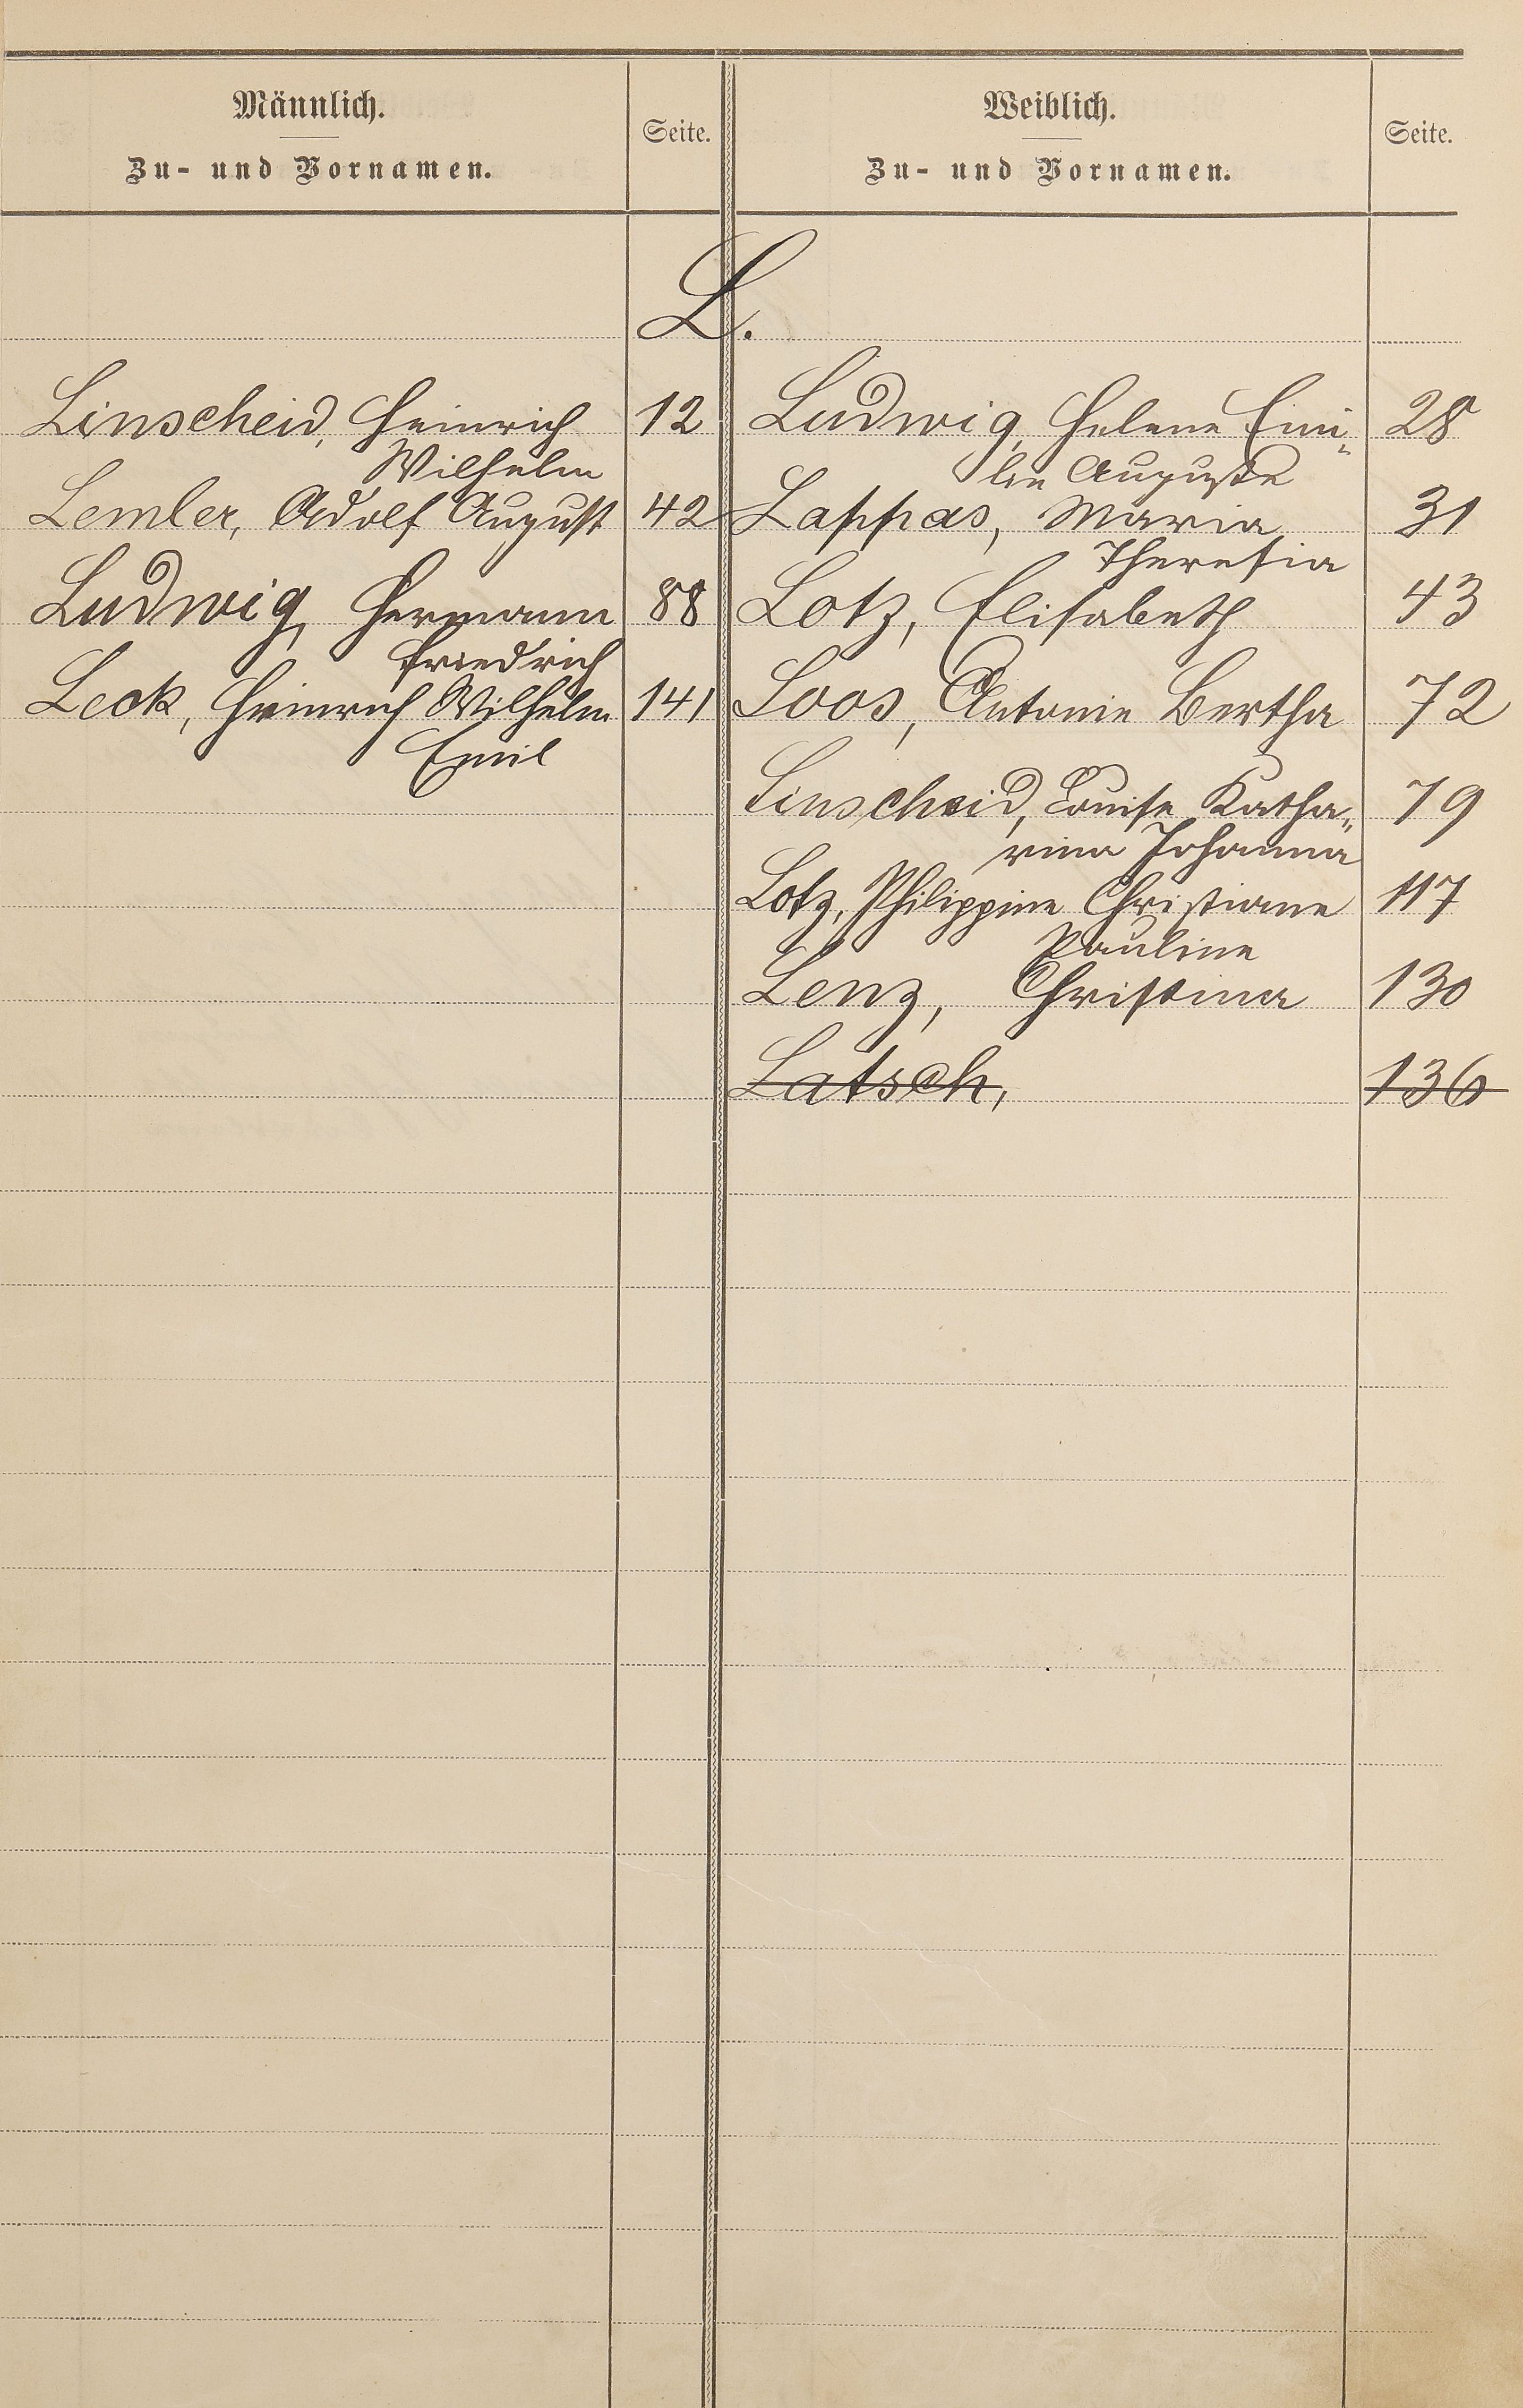 Männlich.
Zu- und Vornamen.
Seite.
Weiblich.
Zu- und Vornamen.
Seite.
L.
Linscheid, Heinrich 12
Wilhelm
Lemler, Adolf August 42
Ludwig, Hermann 88
Friedrich
Leck, Heinrich Wilhelm 141
Emil
Ludwig, Helene Emi- 28
lie Auguste
Lappas, Maria 31
Theresia
Lotz, Elisabeth 43
Loos, Antonie Bertha 72
Linscheid, Louise Katha- 79
rina Johanna
Lotz, Philippine Christiane 117
Pauline
Lenz, Christina 130
Latsch, 136